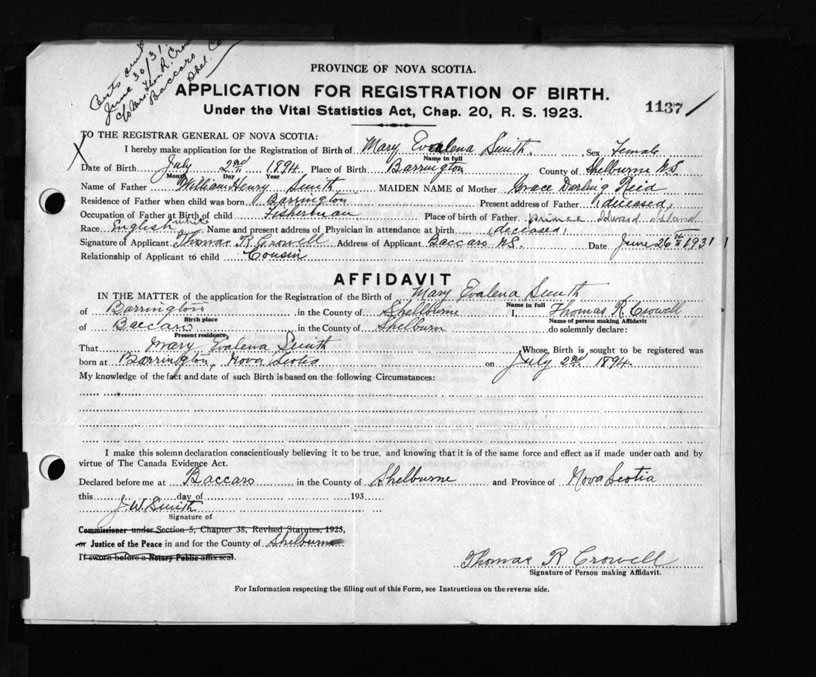 Certs sent
June 30/31
c/o Thos. R. Crow
Baccaro
Shel. Co
PROVINCE OF NOVA SCOTIA.
APPLICATION FOR REGISTRATION OF BIRTH.
Under the Vital Statistics Act, Chap. 20, R. S. 1923.
1137
TO THE REGISTRAR GENERAL OF NOVA SCOTIA:
X I hereby make application for the Registration of Birth of Mary Evalena Smith Sex Female
Name in full
Date of Birth July 2nd 1894 Place of Birth Barrington County of Shelburne N.S
Month Day Year
Name of Father William Henry Smith MAIDEN NAME of Mother Grace Darling Reid
Residence of Father when child was born Barrington Present address of Father (deceased)
Occupation of Father at Birth of child Fisherman Place of birth of Father Prince Edward Island
Race English white Name and present address of Physician in attendance at birth (deceased)
Signature of Applicant Thomas R. Crowell Address of Applicant Baccaro N.S. Date June 26th 1931
Relationship of Applicant to child Cousin
AFFIDAVIT
IN THE MATTER of the application for the Registration of the Birth of Mary Evalena Smith
Name in full
of Barrington in the County of Shelburne I, Thomas R Crowell
Birth place Name of Person making Affidavit
of Baccaro in the County of Shelburn do solemnly declare:
Present residence
That Mary Evalena Smith Whose Birth is sought to be registered was
born at Barrington, Nova Scotia on July 2nd 1894.
My knowledge of the fact and date of such Birth is based on the following Circumstances:
I make this solemn declaration conscientiously believing it to be true, and knowing that it is of the same force and effect as if made under oath and by
virtue of The Canada Evidence Act.
Declared before me at Baccaro in the County of Shelburne and Province of Nova Scotia
this day of 193
J. W. Smith
Signature of
Commissioner under Section 5, Chapter 38, Revised Statutes, 1923,
or Justice of the Peace in and for the County of Shelburne
If sworn before a Notary Public affix seal.
Thomas R Crowell
Signature of Person making Affidavit.
For Information respecting the filling out of this Form, see Instructions on the reverse side.